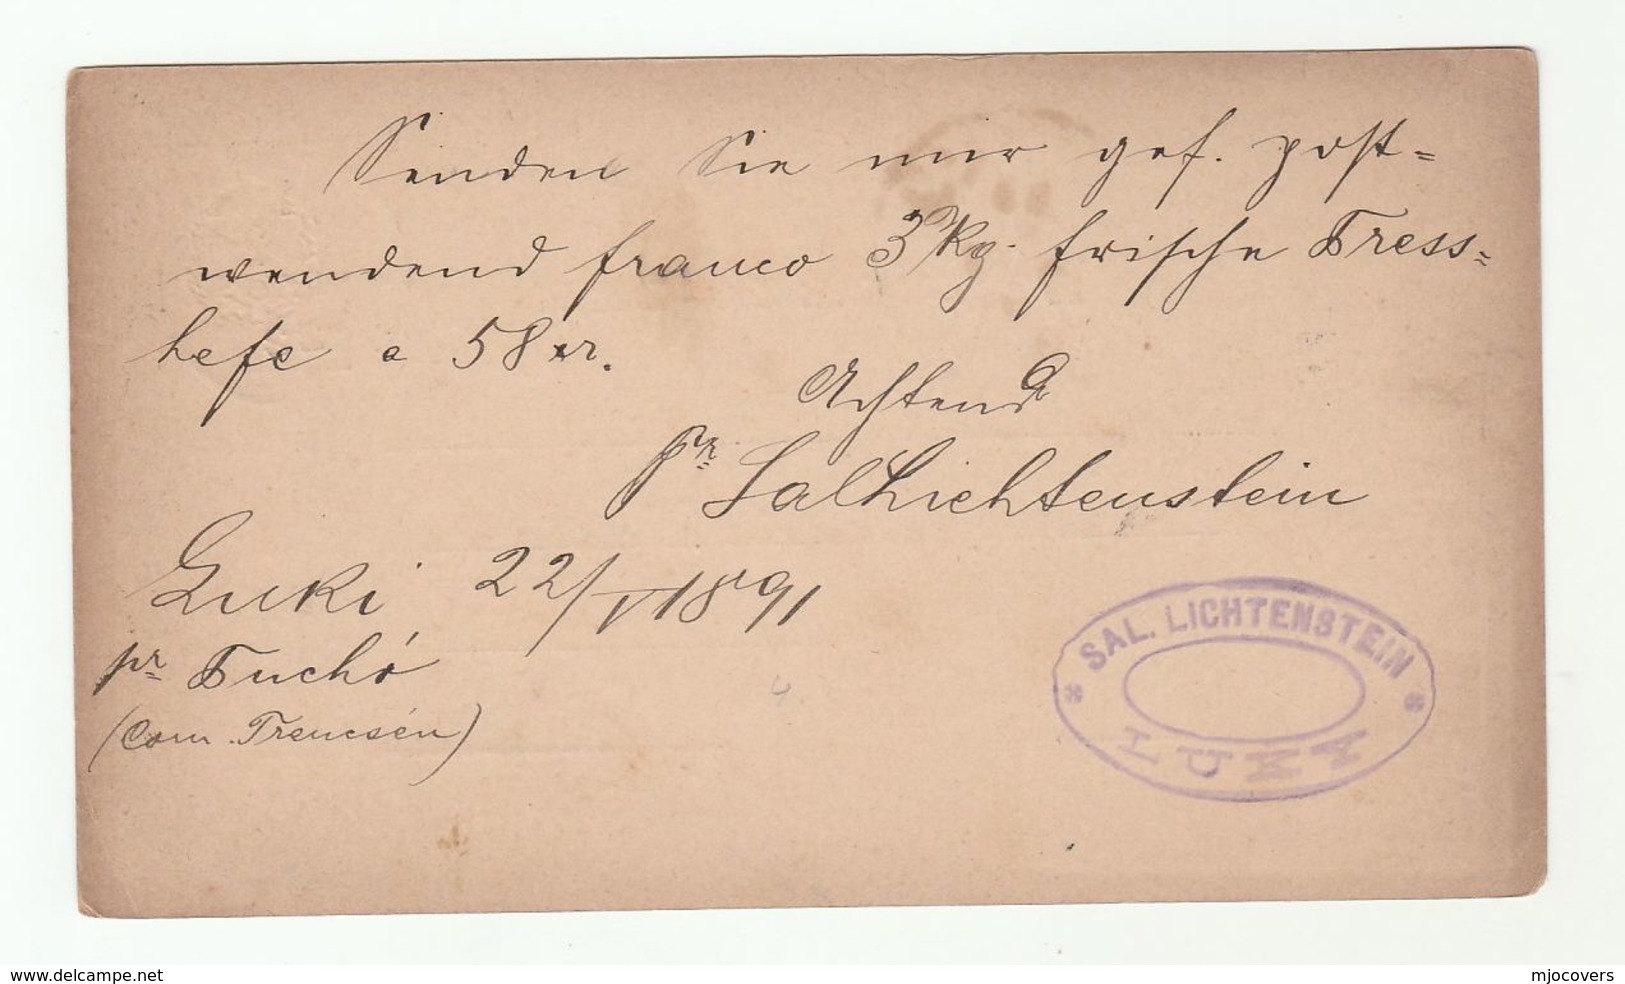 Senden Sie mir gef. post=
wendend franco 3 Kg. frische Press=
hefe a 58 xr.
Achtend
pr Sal Lichtenstein
Luki 22/V 1891
pr Puchó
(Com. Trencsén)
* SAL. LICHTENSTEIN *
www.delcampe.net
mjocovers